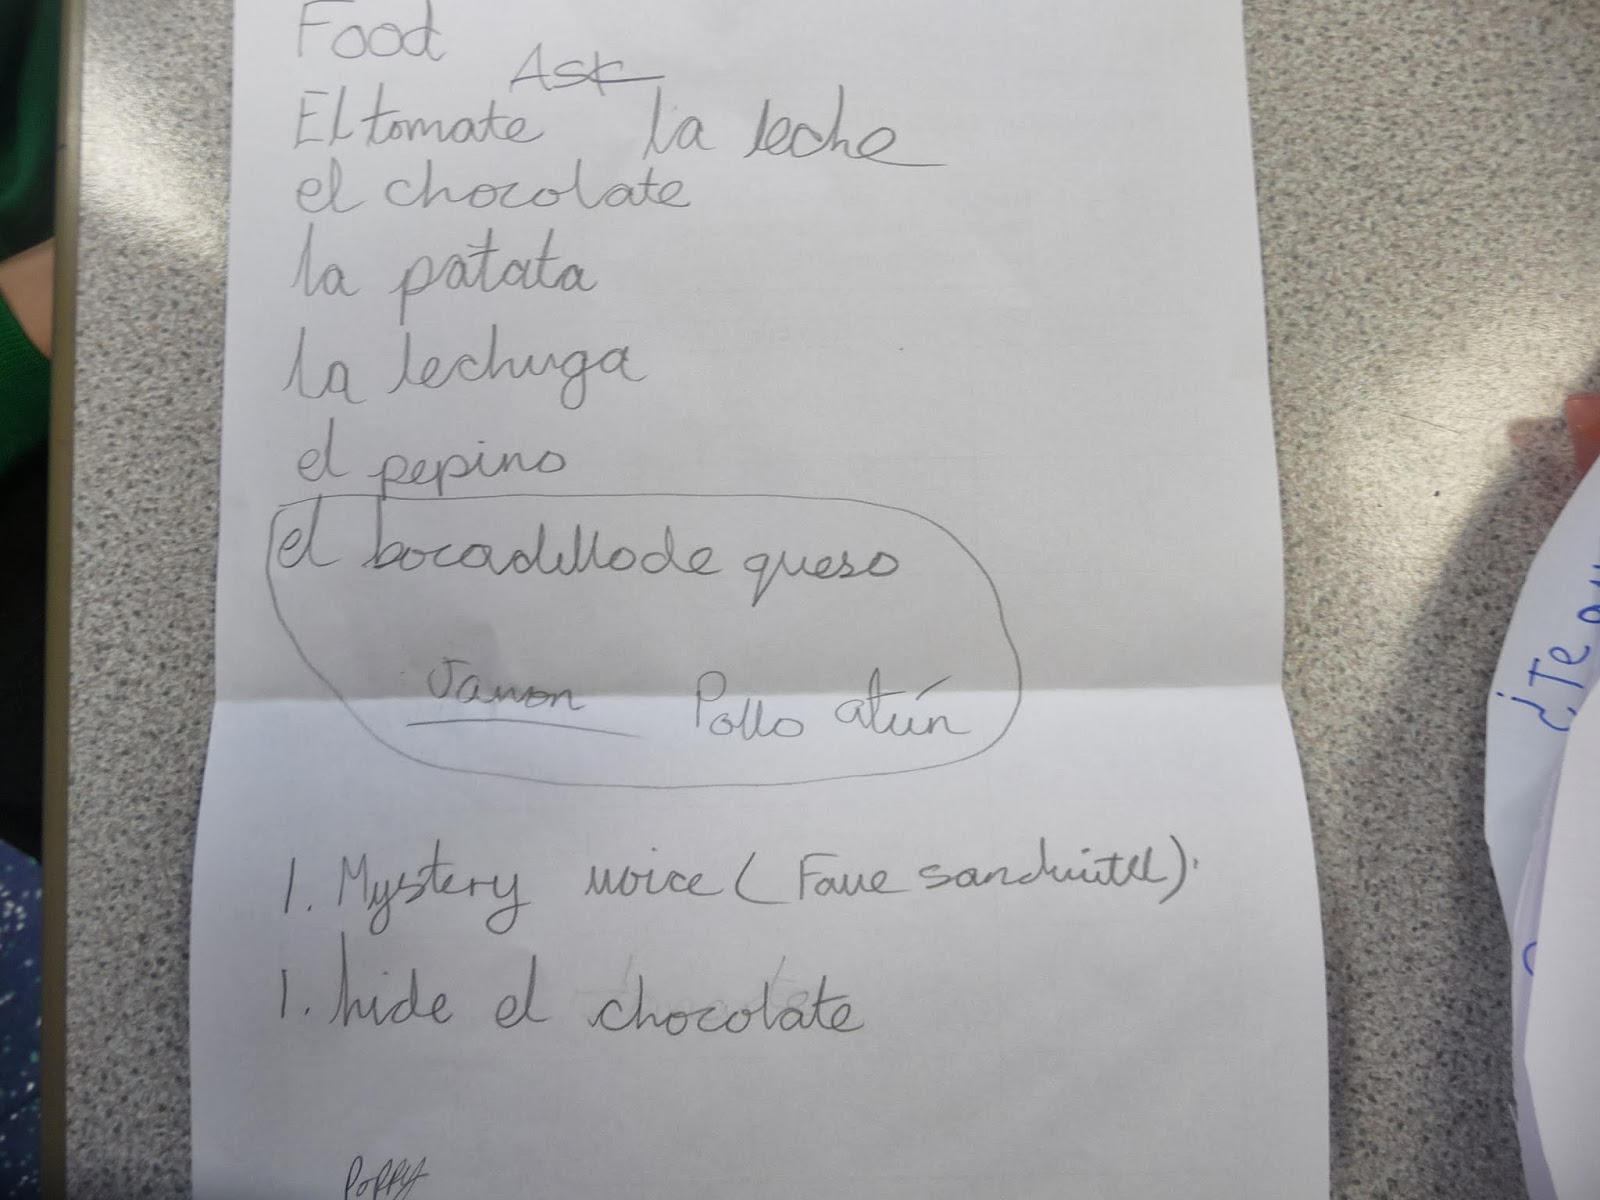 Food
Ask
El tomate la leche
el chocolate
la patata
la lechuga
el pepino
el bocadillo de queso
Jamon Pollo atún
1. Mystery voice (Fave sandwich).
1. hide el chocolate
Poppy
¿Te